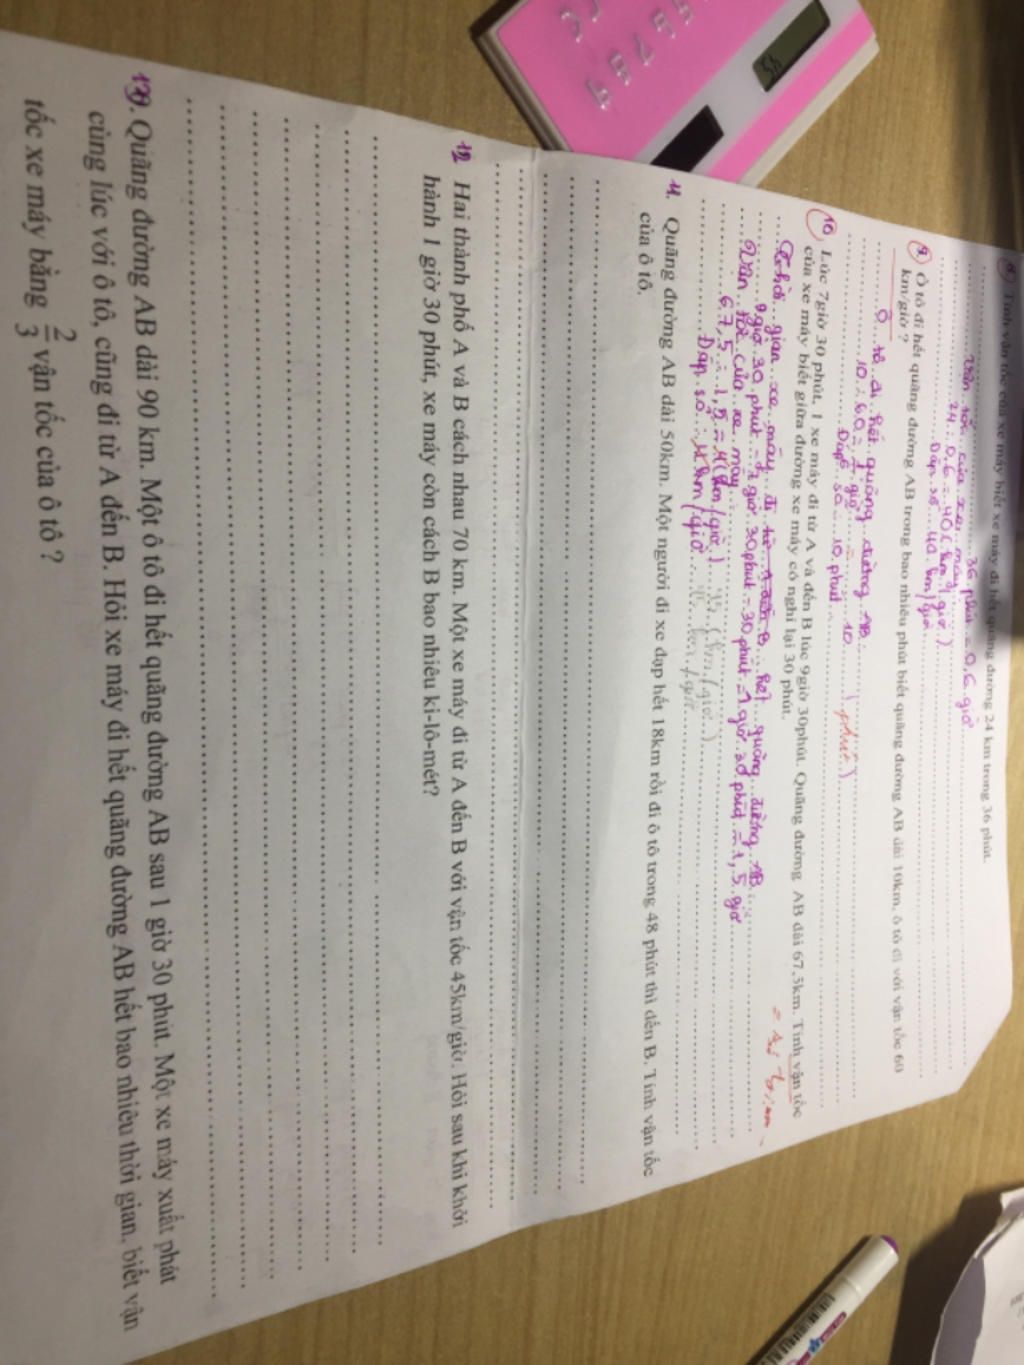 8 Tính vận tốc của xe máy biết xe máy đi hết quãng đường 24 km trong 36 phút.
36 phút = 0,6 giờ
Vận tốc của xe máy
24 : 0,6 = 40 (km/giờ)
Đáp số 40 km/giờ
9 Ô tô đi hết quãng đường AB trong bao nhiêu phút biết quãng đường AB dài 10km, ô tô đi với vận tốc 60
km/giờ ?
Ô tô đi hết quãng đường AB
10 : 60 = giờ = 10 (phút)
Đáp số 10 phút
10 Lúc 7giờ 30 phút, 1 xe máy đi từ A và đến B lúc 9giờ 30phút. Quãng đường AB dài 67,5km. Tính vận tốc
của xe máy biết giữa đường xe máy có nghỉ lại 30 phút.
Thời gian xe máy đi từ A đến B hết quãng đường AB
9 giờ 30 phút - 7 giờ 30 phút - 30 phút = 1 giờ 30 phút = 1,5 giờ
Vận tốc của xe máy
67,5 : 1,5 = (km/giờ)
45 (km/giờ)
Đáp số : km/giờ
11. Quãng đường AB dài 50km. Một người đi xe đạp hết 18km rồi đi ô tô trong 48 phút thì đến B. Tính vận tốc
của ô tô.
12 Hai thành phố A và B cách nhau 70 km. Một xe máy đi từ A đến B với vận tốc 45km/giờ. Hỏi sau khi khởi
hành 1 giờ 30 phút, xe máy còn cách B bao nhiêu ki-lô-mét?
13. Quãng đường AB dài 90 km. Một ô tô đi hết quãng đường AB sau 1 giờ 30 phút. Một xe máy xuất phát
cùng lúc với ô tô, cũng đi từ A đến B. Hỏi xe máy đi hết quãng đường AB hết bao nhiêu thời gian, biết vận
tốc xe máy bằng 2/3 vận tốc của ô tô ?